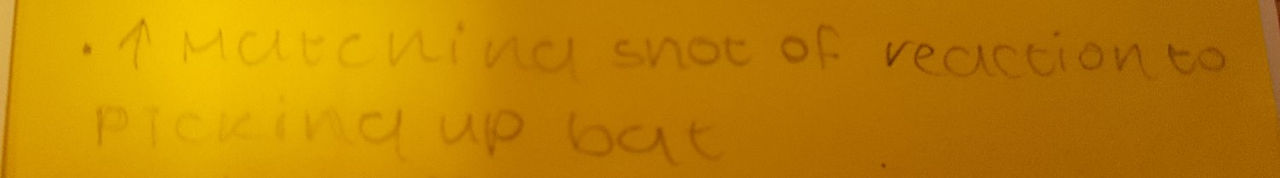 · ↑ Matching shot of reaction to
picking up bat